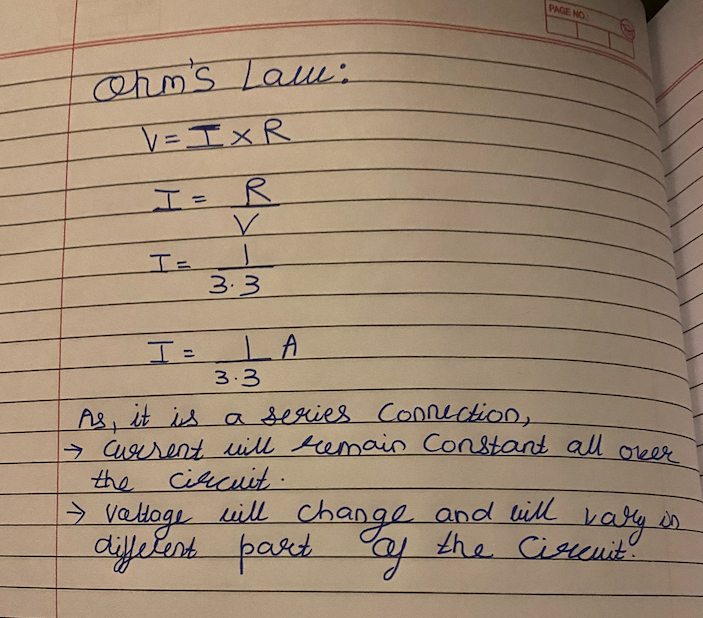 PAGE NO
Ohm's Law:
V = I × R
I = R
V
I = 1
3.3
I = 1 A
3.3
As, it is a series connection,
→ current will remain Constant all over
the circuit.
→ Voltage will change and will vary in
different part of the Circuit.